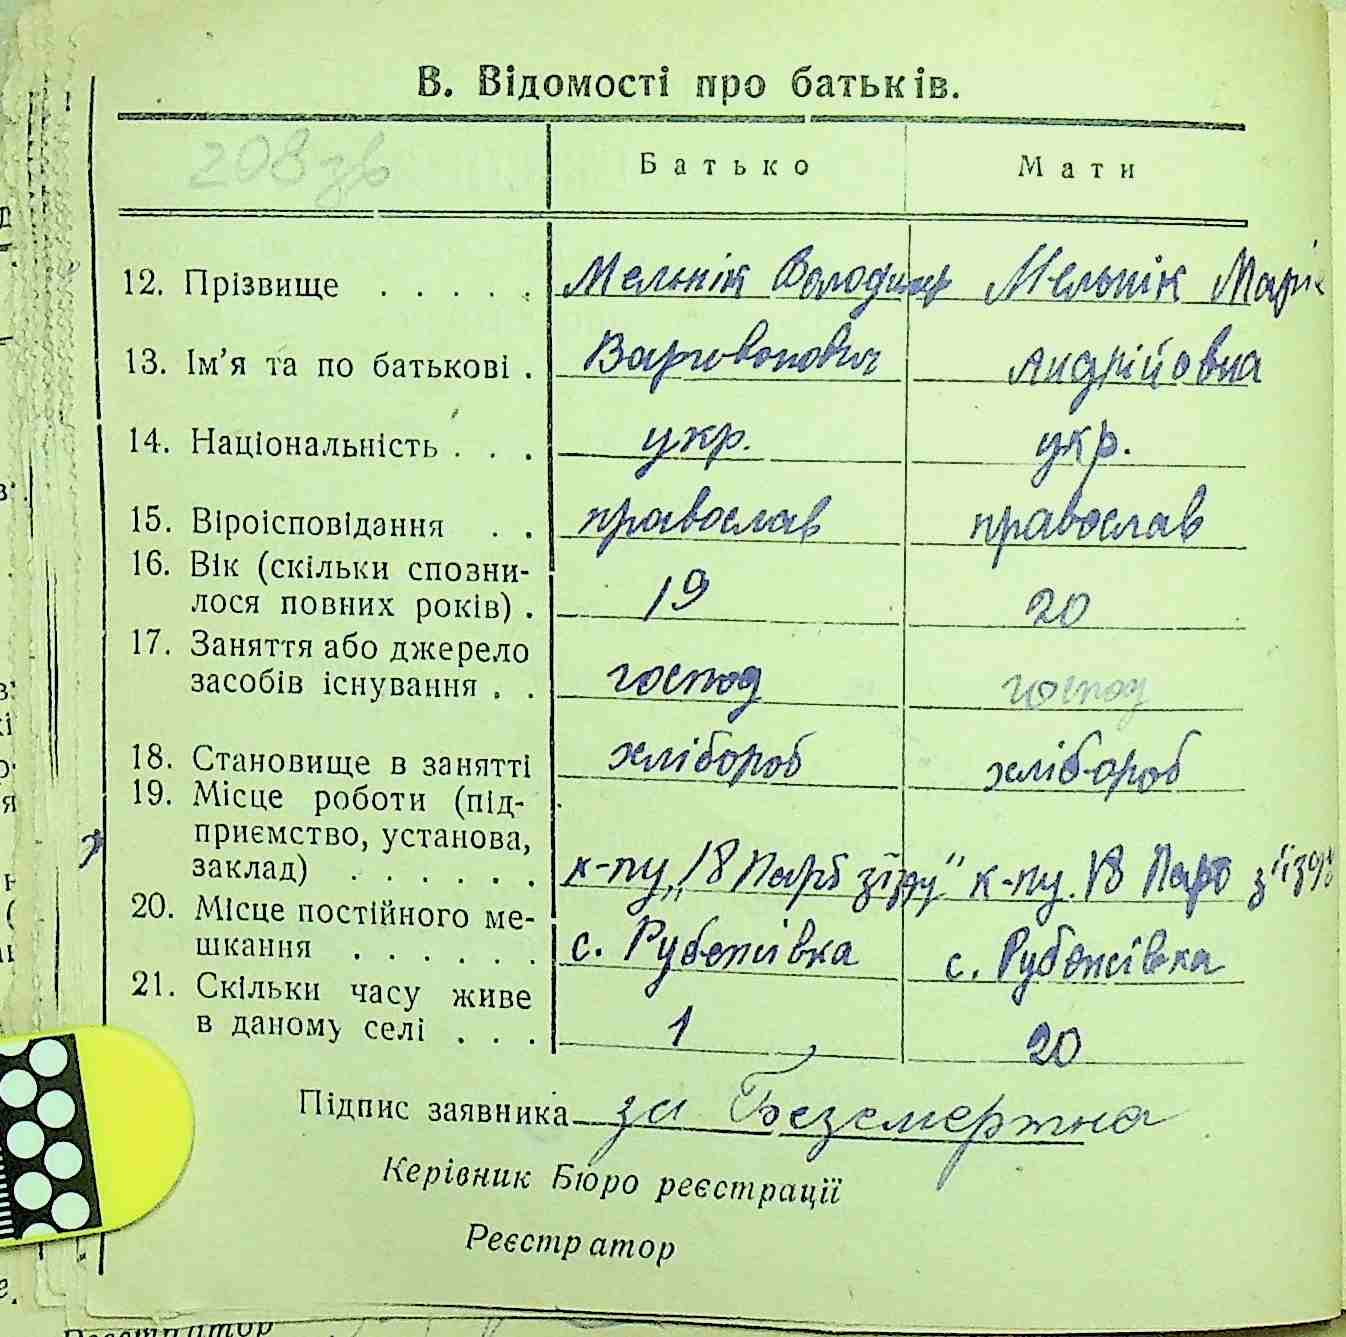 В. Відомості про батьків.
208 зв
Батько Мати
12. Прізвище . . . . . Мельнік Володимир Мельнік Марія
13. Ім'я та по батькові . Андрійовна
14. Національність . . . укр. укр.
15. Віроісповідання . . православ православ
16. Вік (скільки спозни-
лося повних років) . 19 20
17. Заняття або джерело
засобів існування . . господ господ
18. Становище в занятті хлібороб хлібороб
19. Місце роботи (під-
приємство, установа,
заклад) . . . . . . к-пу „18 Парт з'їзду" к-пу. 18 з'їзду
20. Місце постійного ме-
шкання . . . . . . с. Рубежівка с. Рубежівка
21. Скільки часу живе
в даному селі . . . 1 20
Підпис заявника за Безсмертна
Керівник Бюро реєстрації
Реєстратор